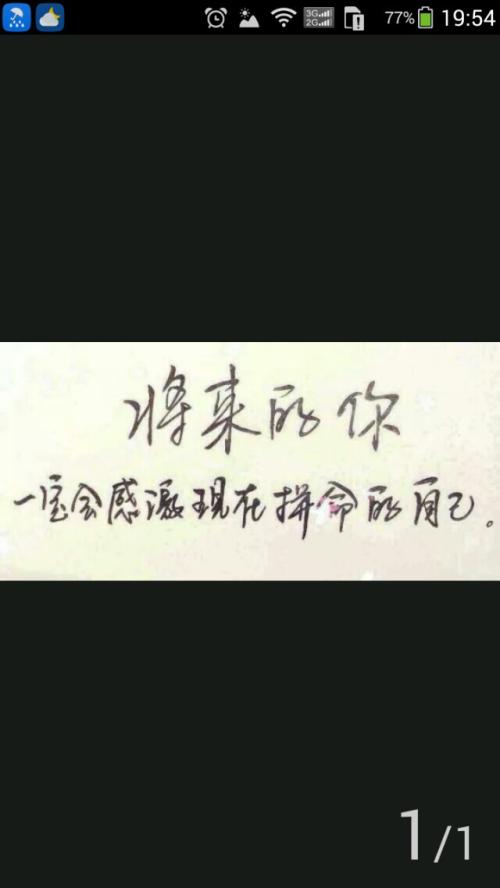 3G
2G
77%
19:54
将来的你
一定会感激现在拼命的自己。
1/1